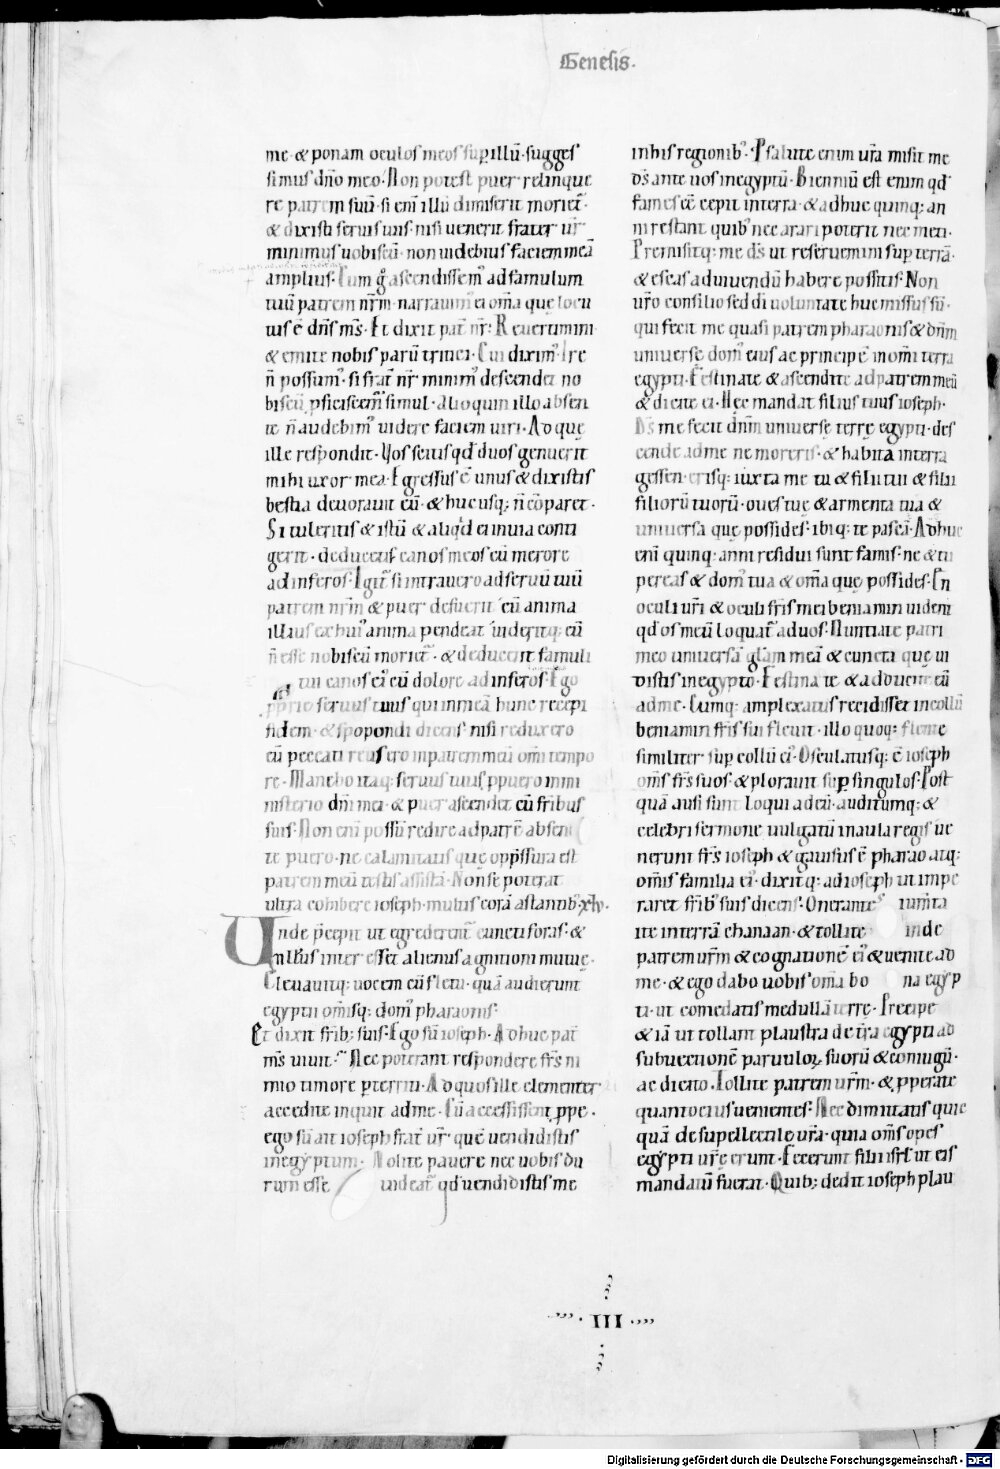 Genesis.
me & ponam oculos meos sup illū. sugges
simus dn̄o meo. Non potest puer relinque
re patrem suū. si eni illū dimiserit moriet᷑.
& dixisti seruis tuis. nisi uenerit frater ur̄
minimus uobiscū. non uidebitis faciem meā
amplius. Cum g̊ ascendissem᷒ ad famulum
tuū patrem nr̄m. narrauim᷒ ei om̄a que locu
tus ē dn̄s ms̄. Et dixit pat᷑ nr̄. Reuertimini
& emite nobis parū tritici. Cui dixim᷒. Ire
n̄ possum᷒. si frat᷑ nr̄ minim᷒ descendet no
biscū ꝓficiscem᷑ simul. Alioquin illo absen
te n̄ audebim᷒ uidere faciem uiri. Ad que
ille respondit. Vos scitis qd̄ duos genuerit
mihi uxor mea. Egressus ē unus & dixistis
bestia deuorauit eū. & hucusq; n̄ cōparet.
Si tuleritis & istū & aliqd ei in uia conti
gerit. deducetis canos meos cū merore
ad inferos. Igit᷑ si intrauero ad seruū tuū
patrem nr̄m & puer defuerit cū anima
illius ex hui᷒ anima pendeat uideritq; eū
n̄ esse nobiscū moriet᷑. & deducent famuli
tui canos ei᷒ cū dolore ad inferos. Ego
prprie seruus tuus qui in meā hunc recepi
fidem & spopondi dicens. nisi reduxero
eū peccati reus ero in patrem meū om̄i tempo
re. Manebo itaq; seruus tuus ꝓ puero in mi
nisterio dn̄i mei. & puer ascendat cū fribus
suis. Non eni possū redire ad patrē absen
te puero. ne calamitatis que opp̄ssura est
patrem meū testis assistā. Non se poterat
ultra cohibere ioseph. multis corā astantib᷒. xlv.
Unde p̄cepit ut egrederent᷑ cuncti foras. &
nullus inter esset alienus agnitioni mutue.
Eleuauitq; uocem cū fletu. quā audierunt
egyptii om̄isq; dom᷒ pharaonis.
Et dixit frib; suis. Ego sū ioseph. Adhuc pat᷑
ms̄ uiuit. Nec poterant respondere frs̄ ni
mio timore ꝑterriti. Ad quos ille clementer.
accedite inquit ad me. Cū accessissent ꝓpe.
ego sū ait ioseph frat᷑ ur̄. que uendidistis
in egyptum. Nolite pauere nec uobis du
rum esse uideat᷑ qd uendidistis me
in his regionib᷒. P salute enim ur̄a misit me
ds̄ ante uos in egyptū. Bienniū est enim qd̄
fames ēē cepit in terra. & adhuc quinq; an
ni restant quib᷒ nec arari poterit nec meti.
Premisitq; me ds̄ ut reseruemini sup terrā.
& escas ad uiuendū habere possitis. Non
ur̄o consilio sed di uoluntate huc missus sū.
qui fecit me quasi patrem pharaonis & dn̄m
uniuerse dom᷒ eius ac principē in om̄i terra
egypti. Festinate & ascendite ad patrem meū
& dicite ei. Nec mandat filius tuus ioseph.
Ds̄ me fecit dn̄m uniuerse terre egypti. des
cende ad me ne moreris. & habita in terra
gessen. erisq; iuxta me tu & filii tui & filii
filiorū tuorū. oues tue & armenta tua &
uniuersa que possides. ibiq; te pascā. Adhuc
eni quinq; anni residui sunt famis. ne & tu
pereas & dom᷒ tua & om̄a que possides. En
oculi ur̄i & oculi fris mei beniamin uident
qd os meū loquat᷑ ad uos. Nuntiate patri
meo uniuersā gl̄am meā & cuncta que ui
distis in egypto. Festinate & adducite eū
ad me. Cumq; amplexatus recidisset in collū
beniamin fris sui fleuit. illo quoq; flente
similiter sup collū ei᷒. Osculatusq; ē ioseph
om̄s frs̄ suos. & plorauit sup singulos. Post
quā ausi sunt loqui ad eū. auditumq; &
celebri sermone uulgatū in aula regis ue
nerunt frs̄ ioseph & gauisus ē pharao atq;
om̄is familia ei᷒. dixitq; ad ioseph ut impe
raret frib᷒ suis dicens. Onerantes iumta
ite in terrā chanaan. & tollite inde
patrem ur̄m & cognationē ei᷒ & uenite ad
me. & ego dabo uobis om̄a bona egyp
ti. ut comedatis medullā terre. Precipe
& iā ut tollant plaustra de tr̄a egypti ad
subuectionē paruuloꝝ suorū & coniugū.
ac dicito. Tollite patrem ur̄m. & ꝓperate
quantocius uenientes. Nec dimittatis quic
quā de supellectile ur̄a. quia om̄s opes
egypti ur̄e erunt. Fecerunt filii isrl̄ ut eis
mandatū fuerat. Quib; dedit ioseph plau
III
Digitalisierung gefördert durch die Deutsche Forschungsgemeinschaft - DFG